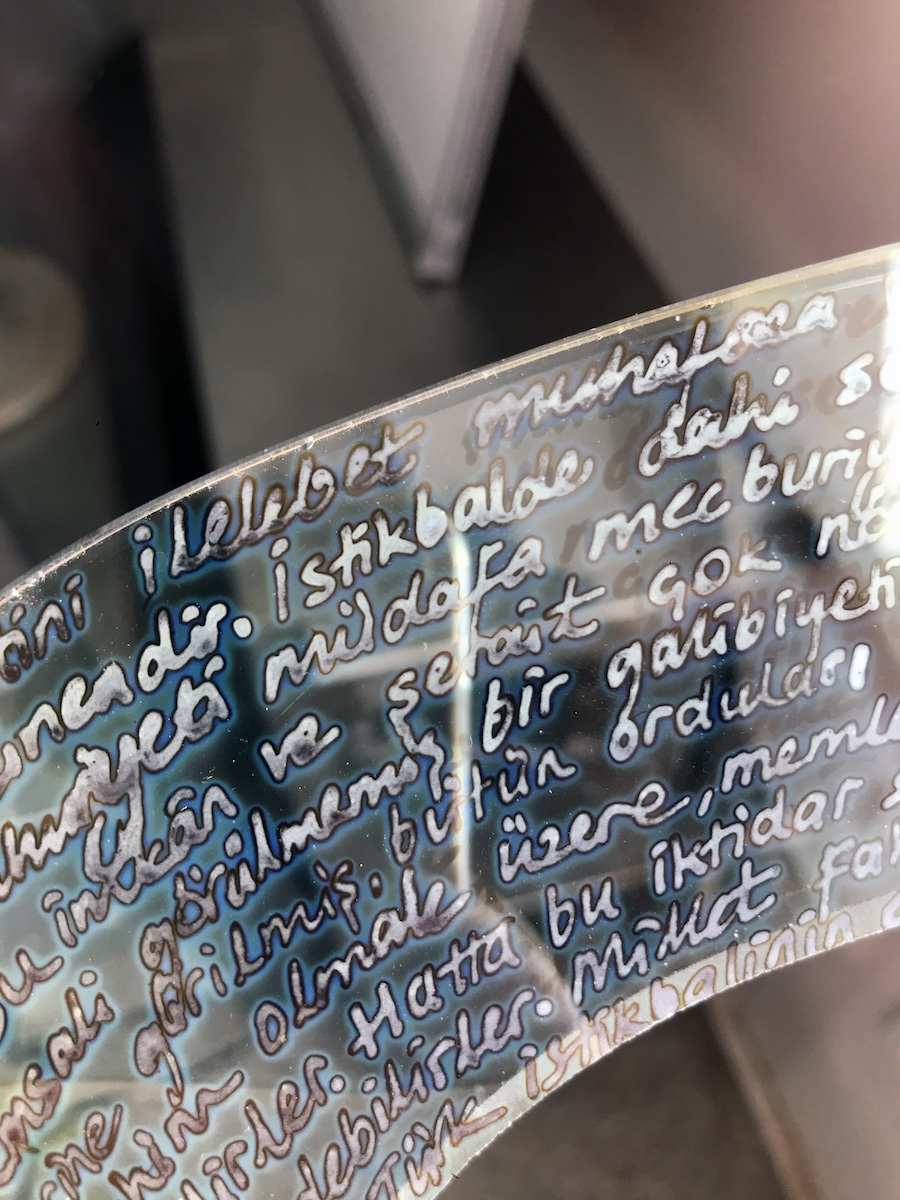 tini ilelebet muhafaza
İstikbalde dahi
huriyeti müdafa mecburiy
bu imkân ve şerait çok nâ
emsali görülmemiş bir galibiyeti
görilmiş. bütün orduları
nin olmak üzere, memle
irler. Hatta bu iktidar
debilirler. Millet fak
Türk istikbalinin